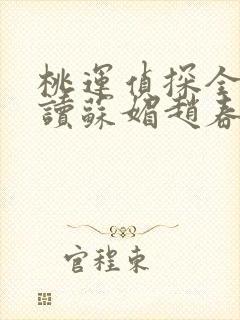 桃運偵探全
讀蘇媚趙春
官程東